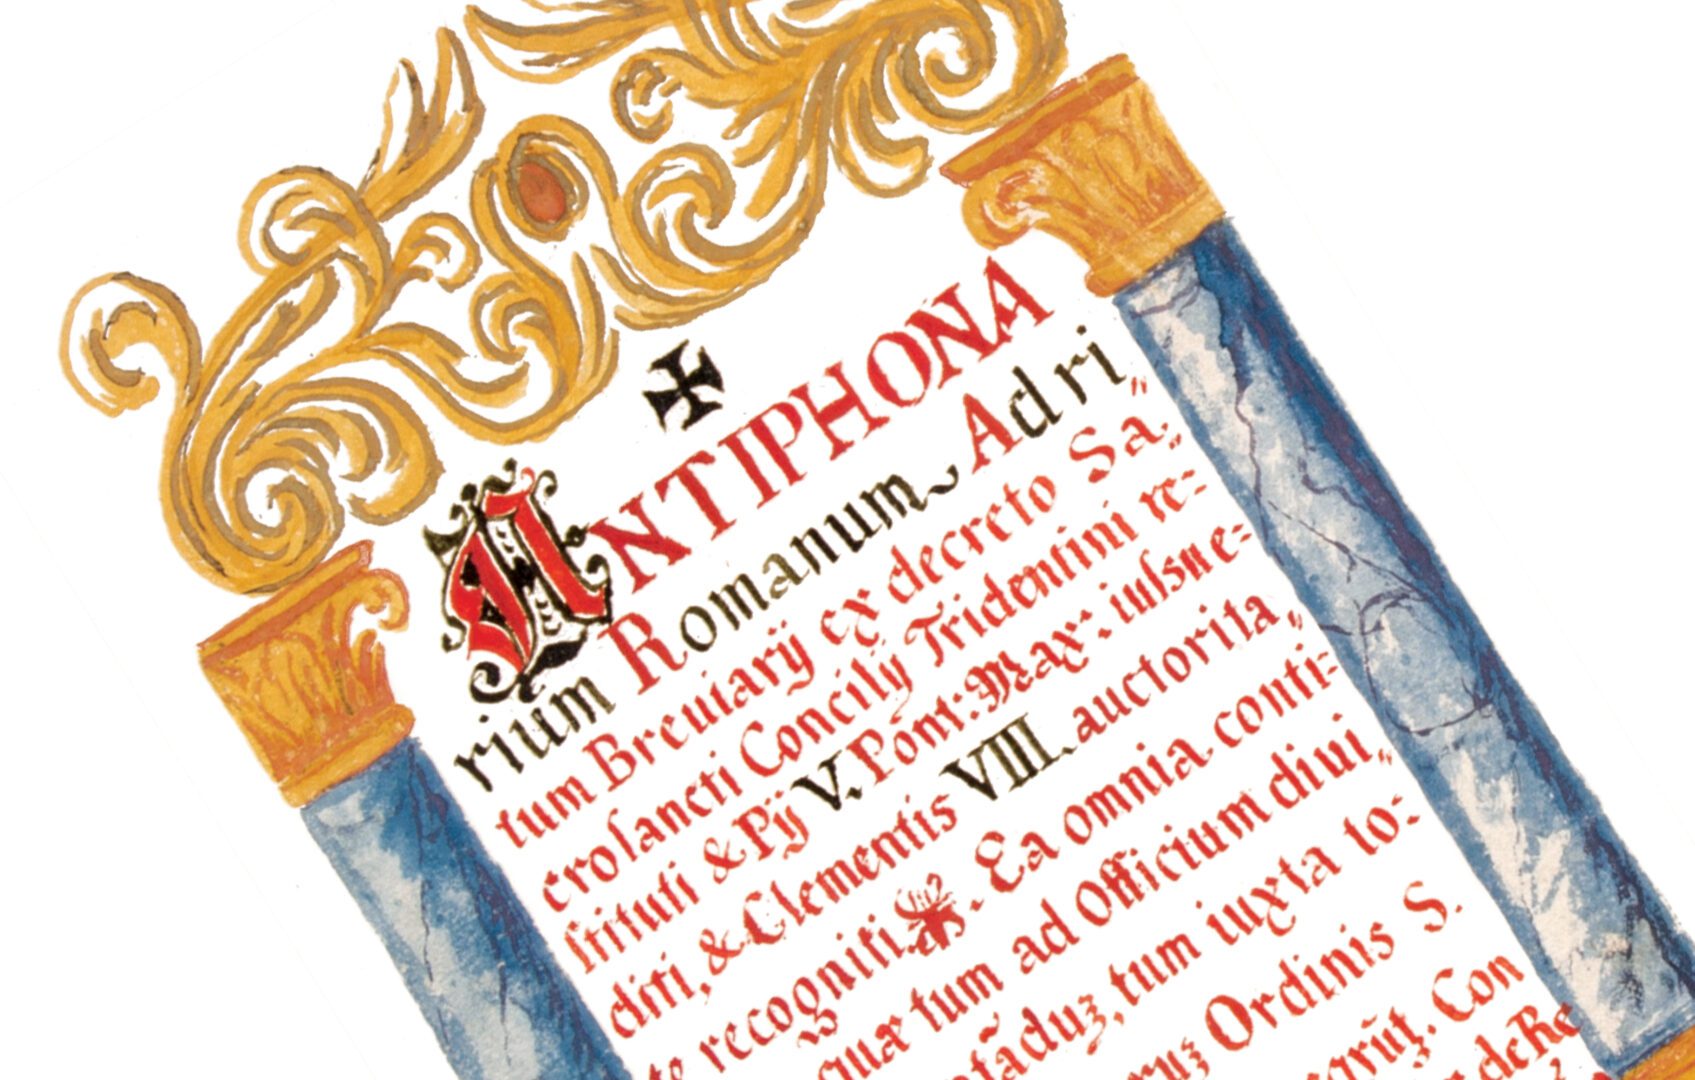 ANTIPHONA
rium Romanum Ad ri„
tum Breuiarij ex decreto Sa„
croſancti Concilij Tridentini re-
ſtituti & Pij V. Pont: Max: iuſsu e-
diti, & Clementis VIII. auctorita„
te recogniti. Ea omnia conti-
quæ tum ad Officium diui„
tum iuxta to-
Ordinis S.
Con